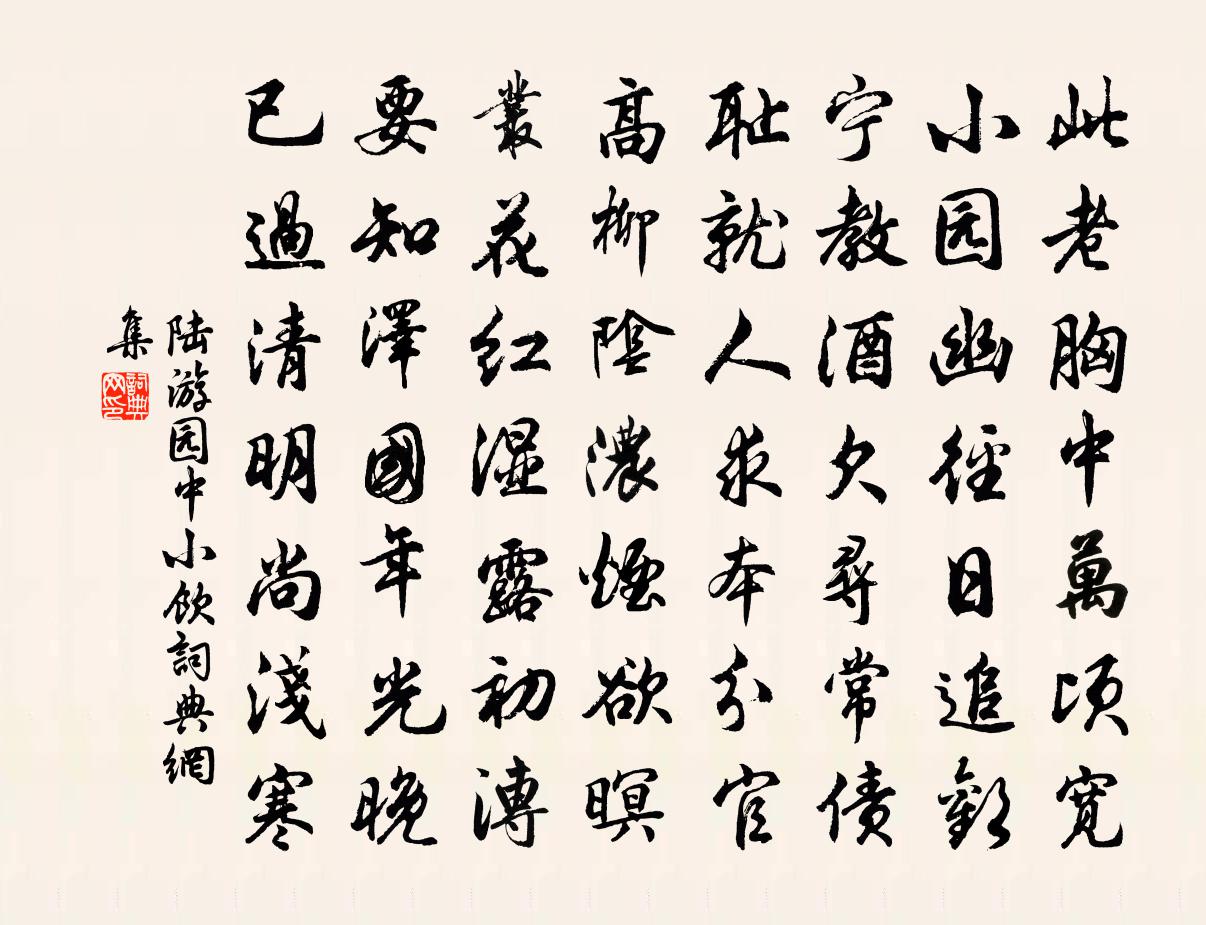 此老胸中萬頃寬
小园幽径日追歡
宁教酒欠尋常債
耻就人求本分官
高柳陰濃煙欲暝
叢花红湿露初漙
要知澤國年光晚
已過清明尚淺寒
陆游园中小飲詞典網
集
詞典
网印